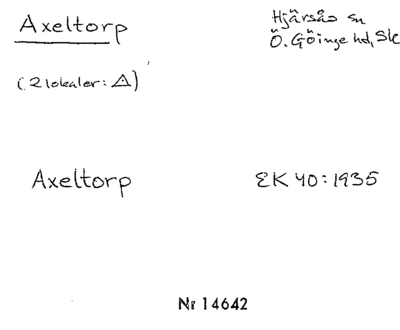 Axeltorp
Hjärsås sn
Ö. Göinge hd, Sk
(2 lokaler: △)
Axeltorp
EK 40:1935
Nr 14642